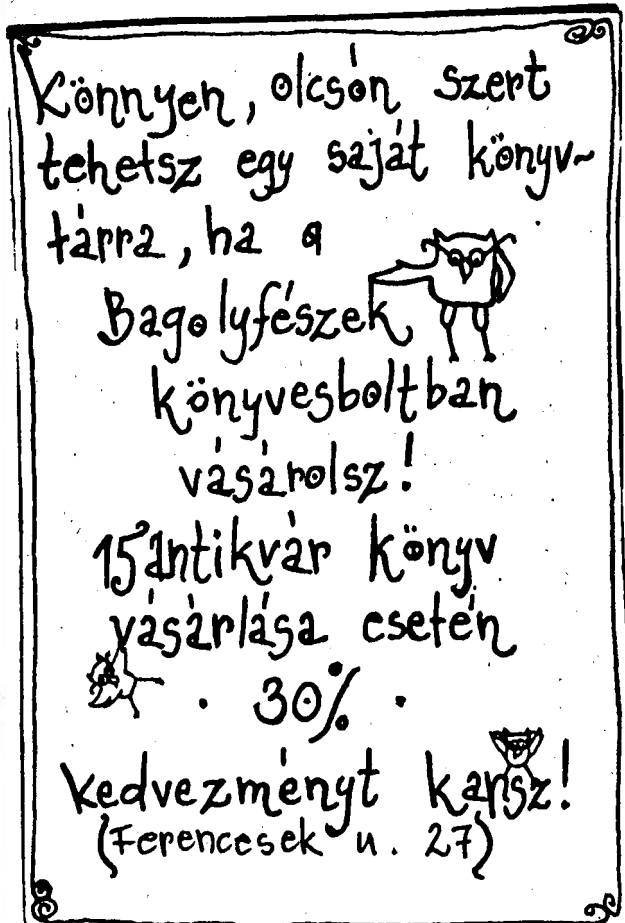 Könnyen, olcsón szert
tehetsz egy saját könyv~
tárra, ha a
Bagolyfészek
könyvesboltban
vásárolsz!
15 antikvár könyv
vásárlása esetén
. 30% .
kedvezményt kapsz!
(Ferencesek u. 27)